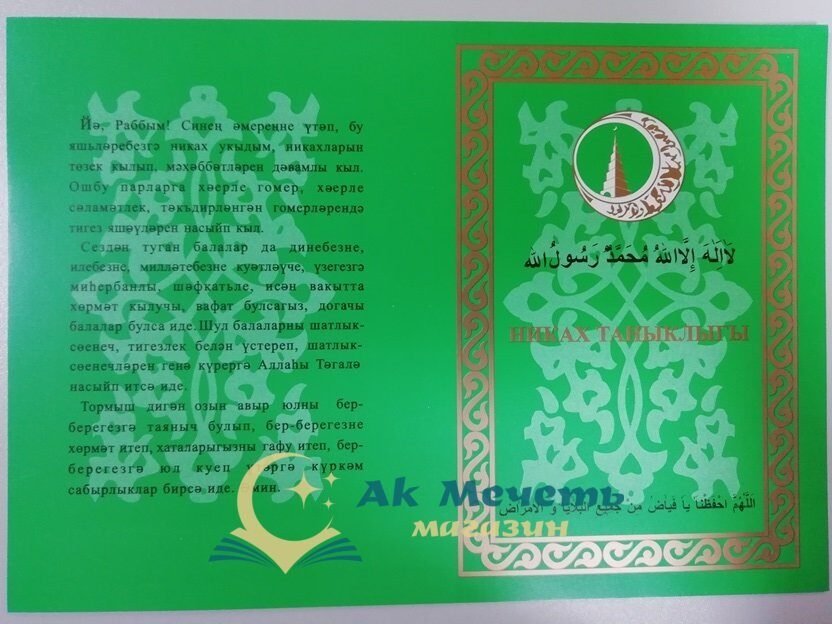 Йә, Раббым! Синең әмереңне үтәп, бу
яшьләребезгә никах укыдым, никахларын
төзек кылып, мәхәббәтләрен дәвамлы кыл.
Ошбу парларга хәерле гомер, хәерле
сәламәтлек, тәкъдирләнгән гомерләрендә
тигез яшәүләрен насыйп кыл.
Сездән туган балалар да динебезне,
илебезне, милләтебезне куәтләүче, үзегезгә
миһербанлы, шәфкатьле, исән вакытта
хөрмәт кылучы, вафат булсагыз, догачы
балалар булса иде. Шул балаларны шатлык-
сөенеч, тигезлек белән үстереп, шатлык-
сөенечләрен генә күрергә Аллаһы Тәгалә
насыйп итсә иде.
Тормыш дигән озын авыр юлны бер-
берегезгә таяныч булып, бер-берегезне
хөрмәт итеп, хаталарыгызны гафу итеп, бер-
берегезгә юл куеп үтәргә күркәм
сабырлыклар бирсә иде. Әмин.
لَاإِلٰهَ إِلَّااللهُ مُحَمَّدٌ رَسُولُ الله
НИКАХ ТАНЫКЛЫГЫ
اَللّٰهُمَّ احْفَظْنَا يَا فَيَاضُ مِنْ جَمِيعِ الْبَلَايَا وَ الْاَمْرَاضِ
Ак Мечеть
магазин